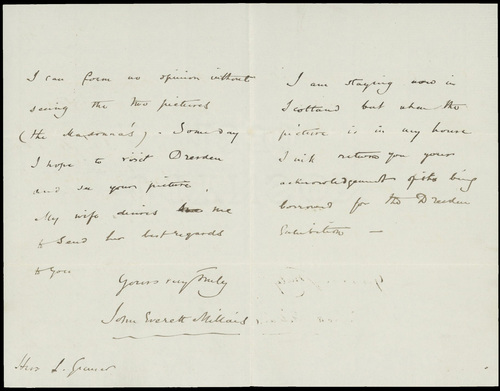 I can form no opinion without
seeing the two pictures
(the Madonna's). Some day
I hope to visit Dresden
and see your picture.
My wife desires me
to send her best regards
to you
Yours very truly
John Everett Millais
Herr L. Gruner
I am staying now in
Scotland but when the
picture is in my house
I will return you your
acknowledgement of its being
borrowed for the Dresden
Exhibition —